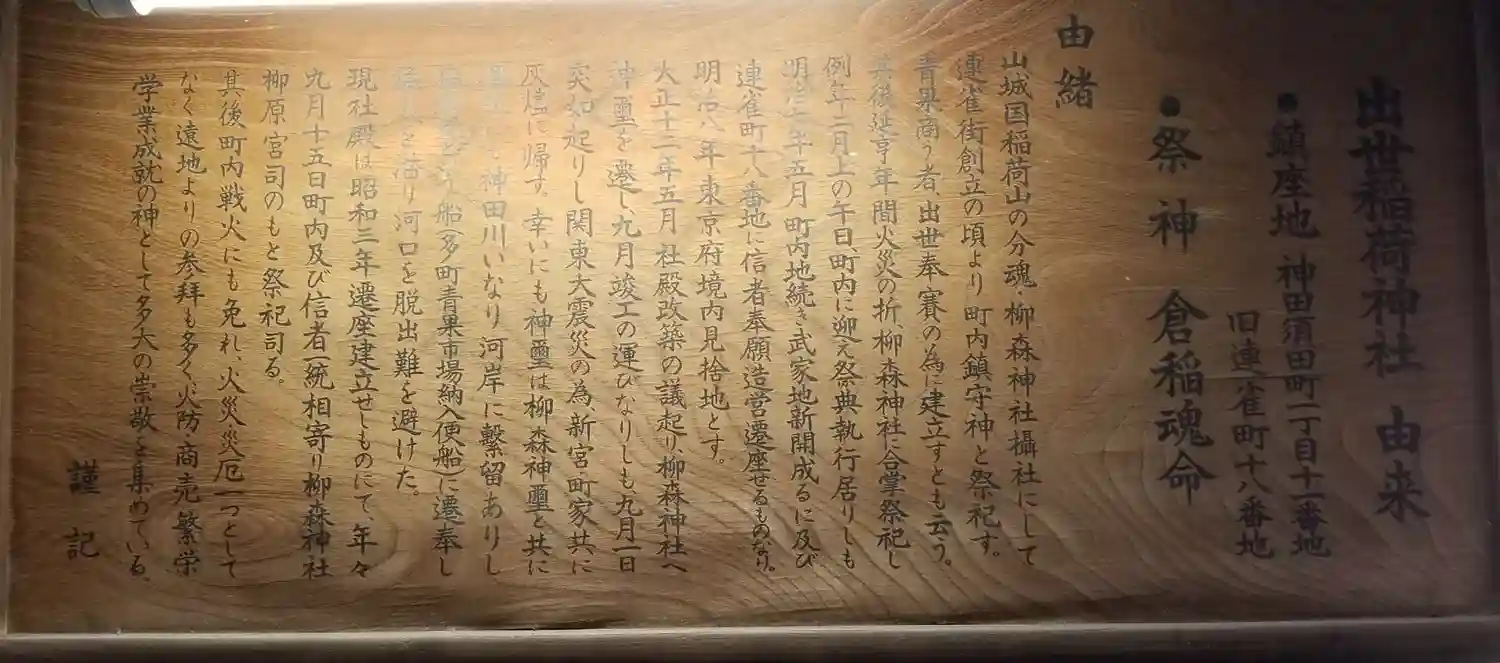 出世稲荷神社 由来
●鎮座地 神田須田町一丁目十一番地
旧連雀町十八番地
●祭神 倉稲魂命
由緒
山城国稲荷山の分魂、柳森神社攝社にして
連雀街創立の頃より町内鎮守神と祭祀す。
青果商う者、出世奉賽の為に建立すとも云う。
其後延亨年間火災の折、柳森神社に合掌祭祀し
例年二月上の午日、町内に迎え祭典執行居りしも
明治二年五月町内地続き武家地新開成るに及び
連雀町十八番地に信者奉願造営遷座せるものなり。
明治八年東京府境内見捨地とす。
大正十二年五月社殿改築の議起り、柳森神社へ
神璽を遷し、九月竣工の運びなりしも九月一日
突如起りし関東大震災の為、新宮・町家共に
灰燼に帰す。幸いにも神璽は柳森神璽と共に
神田川いなり河岸に繋留ありし
船(多町青果市場納入便船)に遷奉し
河口を脱出難を避けた。
現社殿は昭和三年遷座建立せしものにて、年々
九月十五日町内及び信者一統相寄り柳森神社
柳原宮司のもと祭祀司る。
其後町内戦火にも免れ、火災・災厄一つとして
なく遠地よりの参拝も多く、火防・商売繁栄
学業成就の神として多大の崇敬を集めている。
謹記